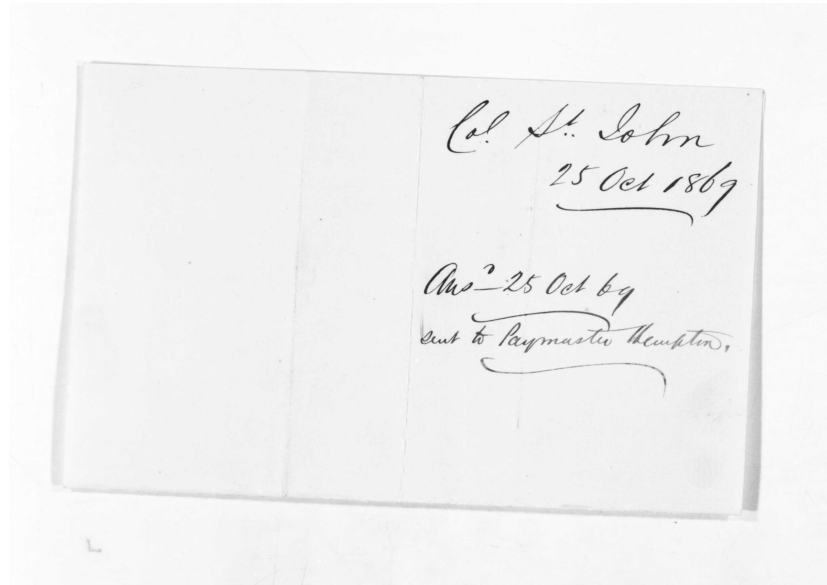 Col. St. John
25 Oct 1869
Ansd — 25 Oct 69
sent to Paymaster